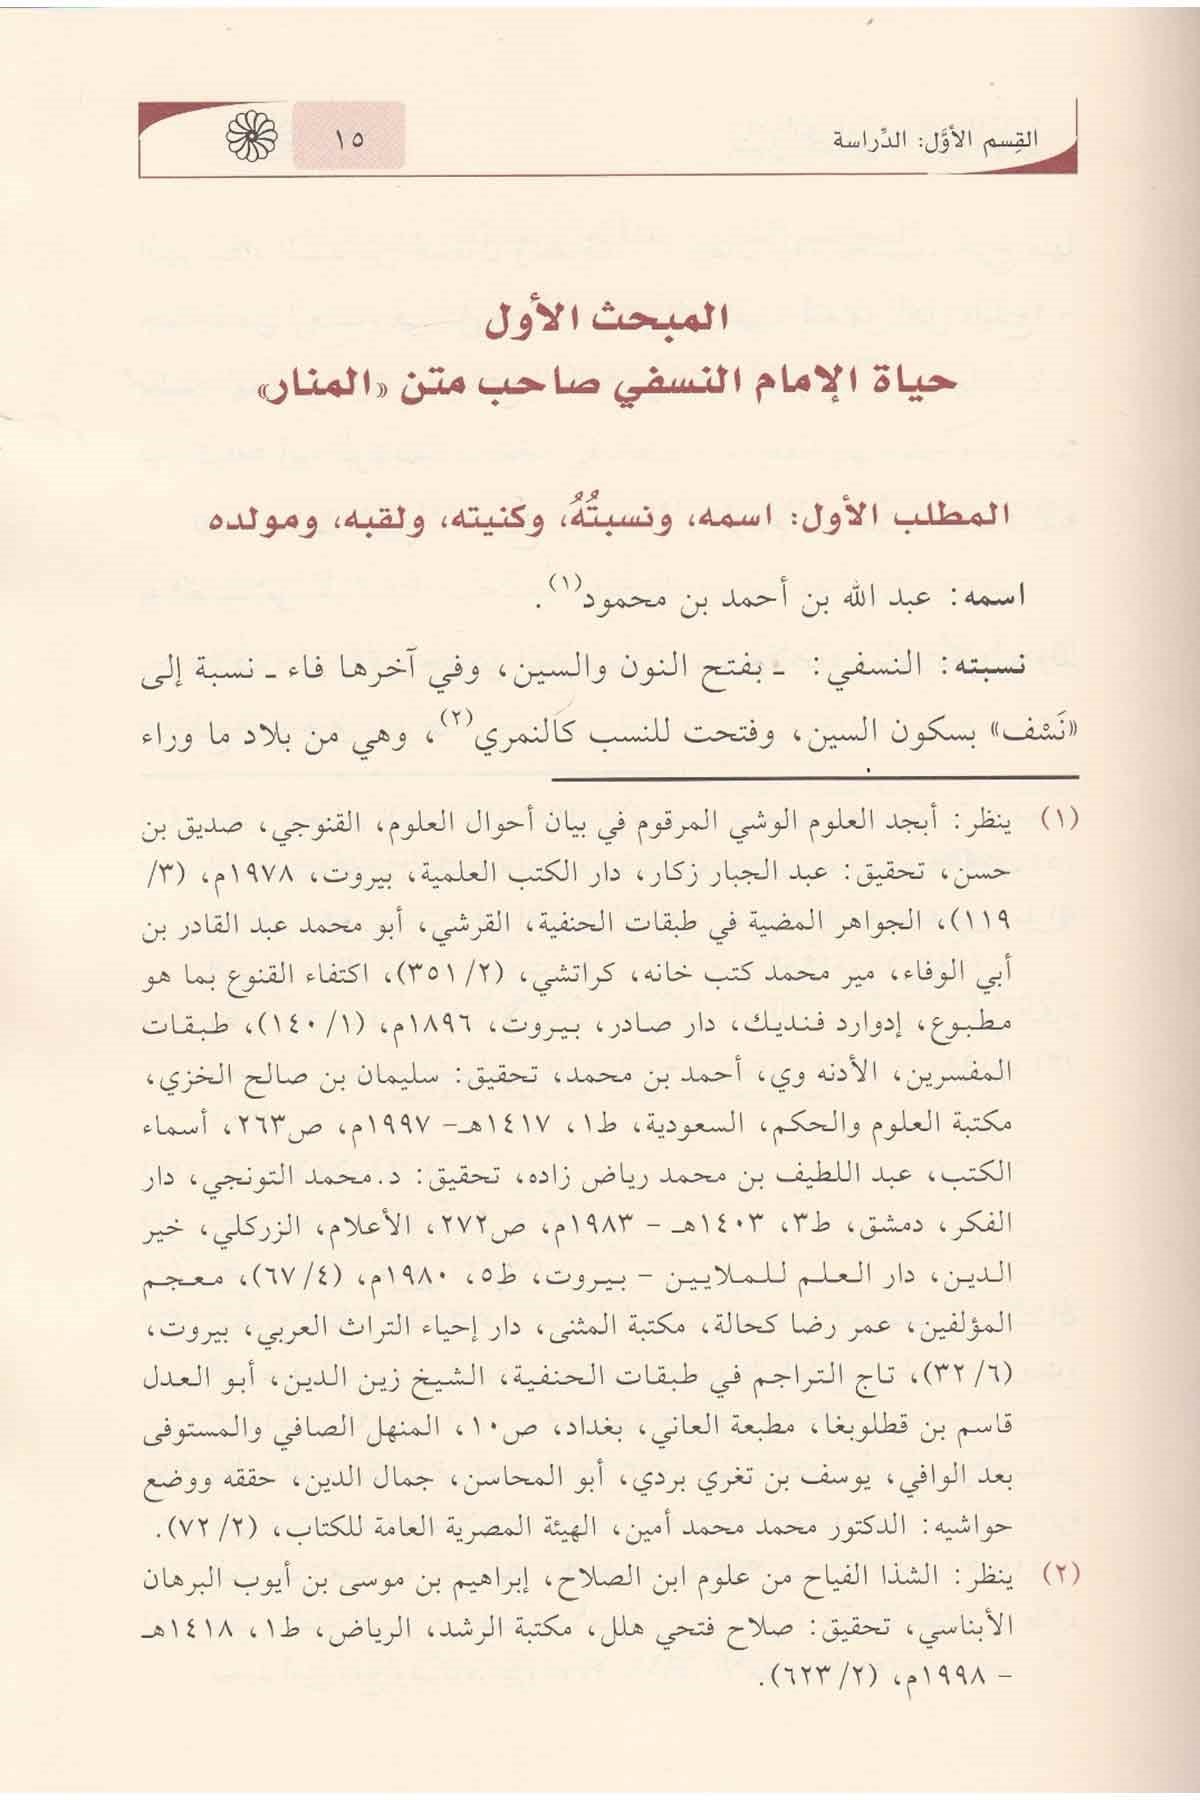 القِسم الأوَّل: الدِّراسة
١٥
المبحث الأول
حياة الإمام النسفي صاحب متن «المنار»
المطلب الأول: اسمه، ونسبتُهُ، وكنيته، ولقبه، ومولده
اسمه: عبد الله بن أحمد بن محمود(١).
نسبته: النسفي: ـ بفتح النون والسين، وفي آخرها فاء ـ نسبة إلى
«نَسْف» بسكون السين، وفتحت للنسب كالنمري(٢)، وهي من بلاد ما وراء
(١) ينظر: أبجد العلوم الوشي المرقوم في بيان أحوال العلوم، القنوجي، صديق بن
حسن، تحقيق: عبد الجبار زكار، دار الكتب العلمية، بيروت، ١٩٧٨م، (٣/
١١٩)، الجواهر المضية في طبقات الحنفية، القرشي، أبو محمد عبد القادر بن
أبي الوفاء، مير محمد كتب خانه، كراتشي، (٢/ ٣٥١)، اكتفاء القنوع بما هو
مطبوع، إدوارد فنديك، دار صادر، بيروت، ١٨٩٦م، (١/ ١٤٠)، طبقات
المفسرين، الأدنه وي، أحمد بن محمد، تحقيق: سليمان بن صالح الخزي،
مكتبة العلوم والحكم، السعودية، ط١، ١٤١٧هـ- ١٩٩٧م، ص٢٦٣، أسماء
الكتب، عبد اللطيف بن محمد رياض زاده، تحقيق: د.محمد التونجي، دار
الفكر، دمشق، ط٣، ١٤٠٣هـ - ١٩٨٣م، ص٢٧٢، الأعلام، الزركلي، خير
الدين، دار العلم للملايين - بيروت، ط٥، ١٩٨٠م، (٤/ ٦٧)، معجم
المؤلفين، عمر رضا كحالة، مكتبة المثنى، دار إحياء التراث العربي، بيروت،
(٦/ ٣٢)، تاج التراجم في طبقات الحنفية، الشيخ زين الدين، أبو العدل
قاسم بن قطلوبغا، مطبعة العاني، بغداد، ص١٠، المنهل الصافي والمستوفى
بعد الوافي، يوسف بن تغري بردي، أبو المحاسن، جمال الدين، حققه ووضع
حواشيه: الدكتور محمد محمد أمين، الهيئة المصرية العامة للكتاب، (٢/ ٧٢).
(٢) ينظر: الشذا الفياح من علوم ابن الصلاح، إبراهيم بن موسى بن أيوب البرهان
الأبناسي، تحقيق: صلاح فتحي هلل، مكتبة الرشد، الرياض، ط١، ١٤١٨هـ
- ١٩٩٨م، (٢/ ٦٢٣).